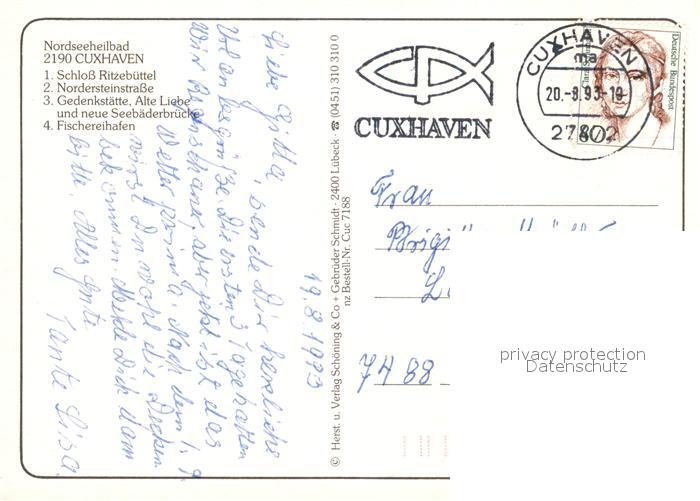 Nordseeheilbad
2190 CUXHAVEN
1. Schloß Ritzebüttel
2. Nordersteinstraße
3. Gedenkstätte, „Alte Liebe“
und neue Seebäderbrücke
4. Fischereihafen
Liebe Gitta, sende Dir herzliche
Urlaubsgrüße. Die ersten 3 Tage hatten
wir Regenschauer, aber jetzt ist das
Wetter prima. Nach dem 1. 9.
wirst Du wohl die Decken
bekommen. Melde Dich dann
bitte. Alles Gute
Tante Lisa.
19.8.1993
© Herst. u. Verlag Schöning & Co + Gebrüder Schmidt · 2400 Lübeck ☎ (0451) 310 310 0
nz Bestell-Nr. Cuc 7188
CUXHAVEN
CUXHAVEN
ma
20.-8.93-19
27472
Deutsche Bundespost
Frau
7488
privacy protection
Datenschutz